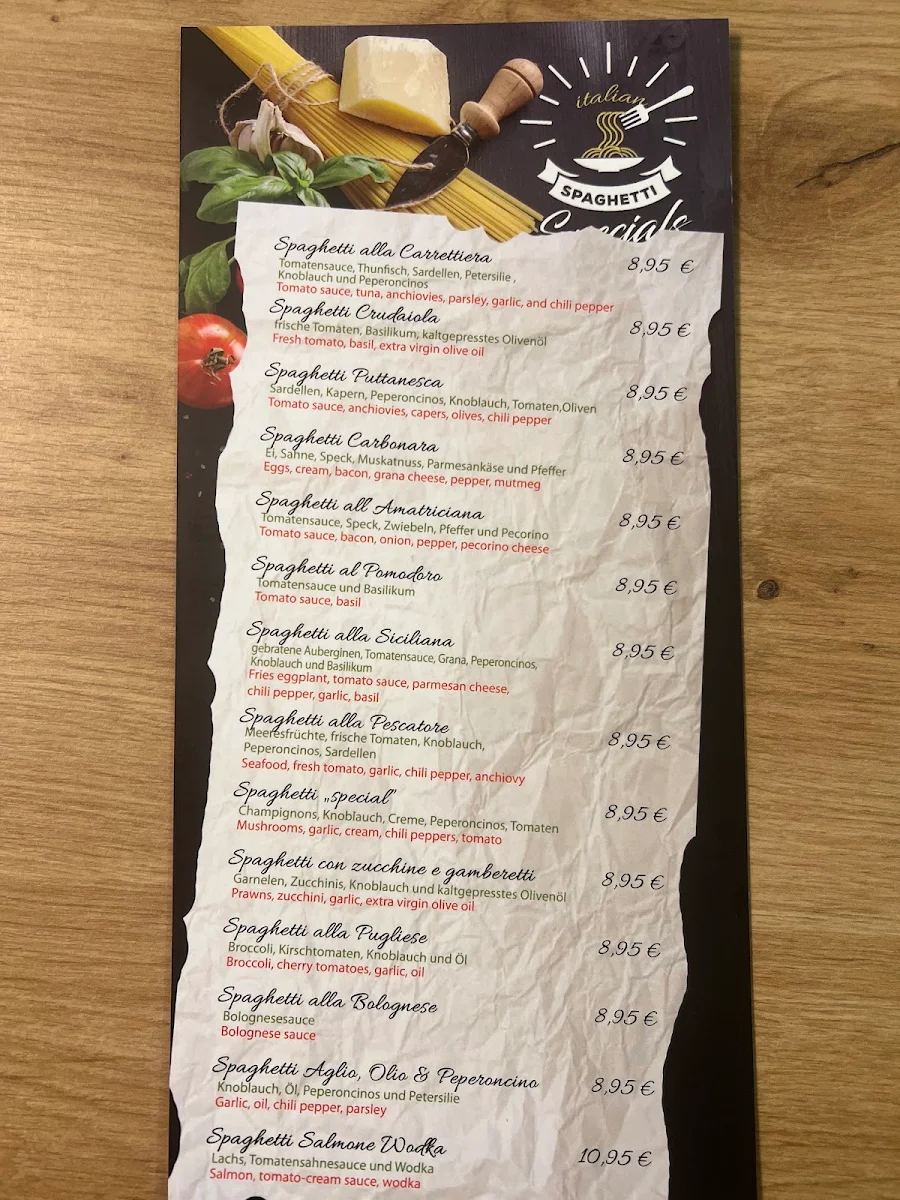 italian
SPAGHETTI
Specials
Spaghetti alla Carrettiera 8,95 €
Tomatensauce, Thunfisch, Sardellen, Petersilie ,
Knoblauch und Peperoncinos
Tomato sauce, tuna, anchiovies, parsley, garlic, and chili pepper
Spaghetti Crudaiola 8,95 €
frische Tomaten, Basilikum, kaltgepresstes Olivenöl
Fresh tomato, basil, extra virgin olive oil
Spaghetti Puttanesca 8,95 €
Sardellen, Kapern, Peperoncinos, Knoblauch, Tomaten,Oliven
Tomato sauce, anchiovies, capers, olives, chili pepper
Spaghetti Carbonara 8,95 €
Ei, Sahne, Speck, Muskatnuss, Parmesankäse und Pfeffer
Eggs, cream, bacon, grana cheese, pepper, mutmeg
Spaghetti all' Amatriciana 8,95 €
Tomatensauce, Speck, Zwiebeln, Pfeffer und Pecorino
Tomato sauce, bacon, onion, pepper, pecorino cheese
Spaghetti al Pomodoro 8,95 €
Tomatensauce und Basilikum
Tomato sauce, basil
Spaghetti alla Siciliana 8,95 €
gebratene Auberginen, Tomatensauce, Grana, Peperoncinos,
Knoblauch und Basilikum
Fries eggplant, tomato sauce, parmesan cheese,
chili pepper, garlic, basil
Spaghetti alla Pescatore 8,95 €
Meeresfrüchte, frische Tomaten, Knoblauch,
Peperoncinos, Sardellen
Seafood, fresh tomato, garlic, chili pepper, anchiovy
Spaghetti „special" 8,95 €
Champignons, Knoblauch, Creme, Peperoncinos, Tomaten
Mushrooms, garlic, cream, chili peppers, tomato
Spaghetti con zucchine e gamberetti 8,95 €
Garnelen, Zucchinis, Knoblauch und kaltgepresstes Olivenöl
Prawns, zucchini, garlic, extra virgin olive oil
Spaghetti alla Pugliese 8,95 €
Broccoli, Kirschtomaten, Knoblauch und Öl
Broccoli, cherry tomatoes, garlic, oil
Spaghetti alla Bolognese 8,95 €
Bolognesesauce
Bolognese sauce
Spaghetti Aglio, Olio & Peperoncino 8,95 €
Knoblauch, Öl, Peperoncinos und Petersilie
Garlic, oil, chili pepper, parsley
Spaghetti Salmone Wodka 10,95 €
Lachs, Tomatensahnesauce und Wodka
Salmon, tomato-cream sauce, wodka